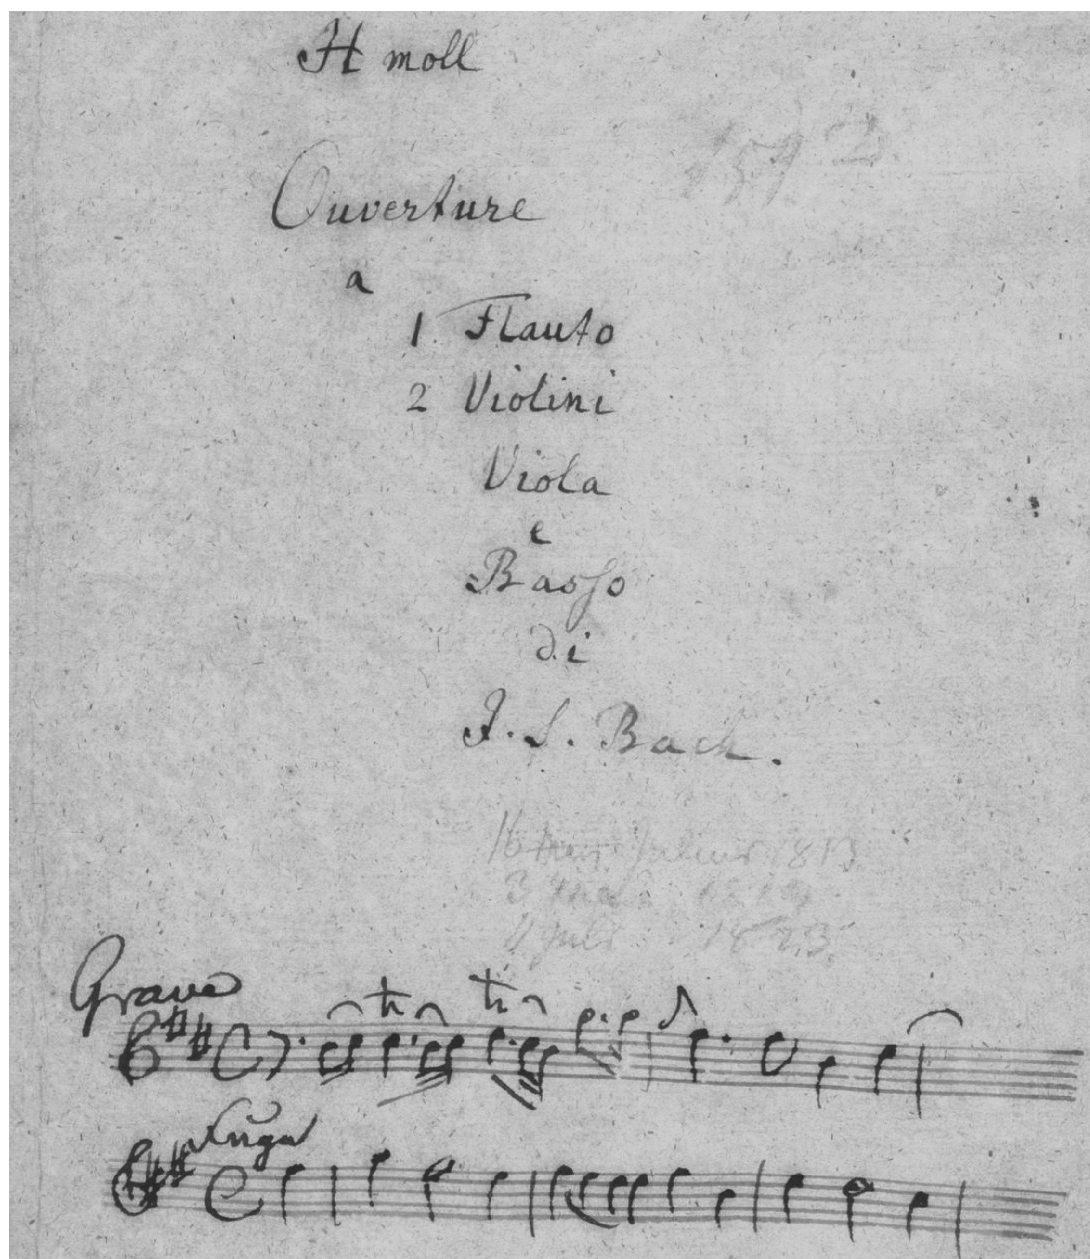 H moll
Ouverture
a
1. Flauto
2 Violini
Viola
e
Basso
di
J. S. Bach.
16 Julius 1813
3
4 Juli 1823
Grave
Fuga